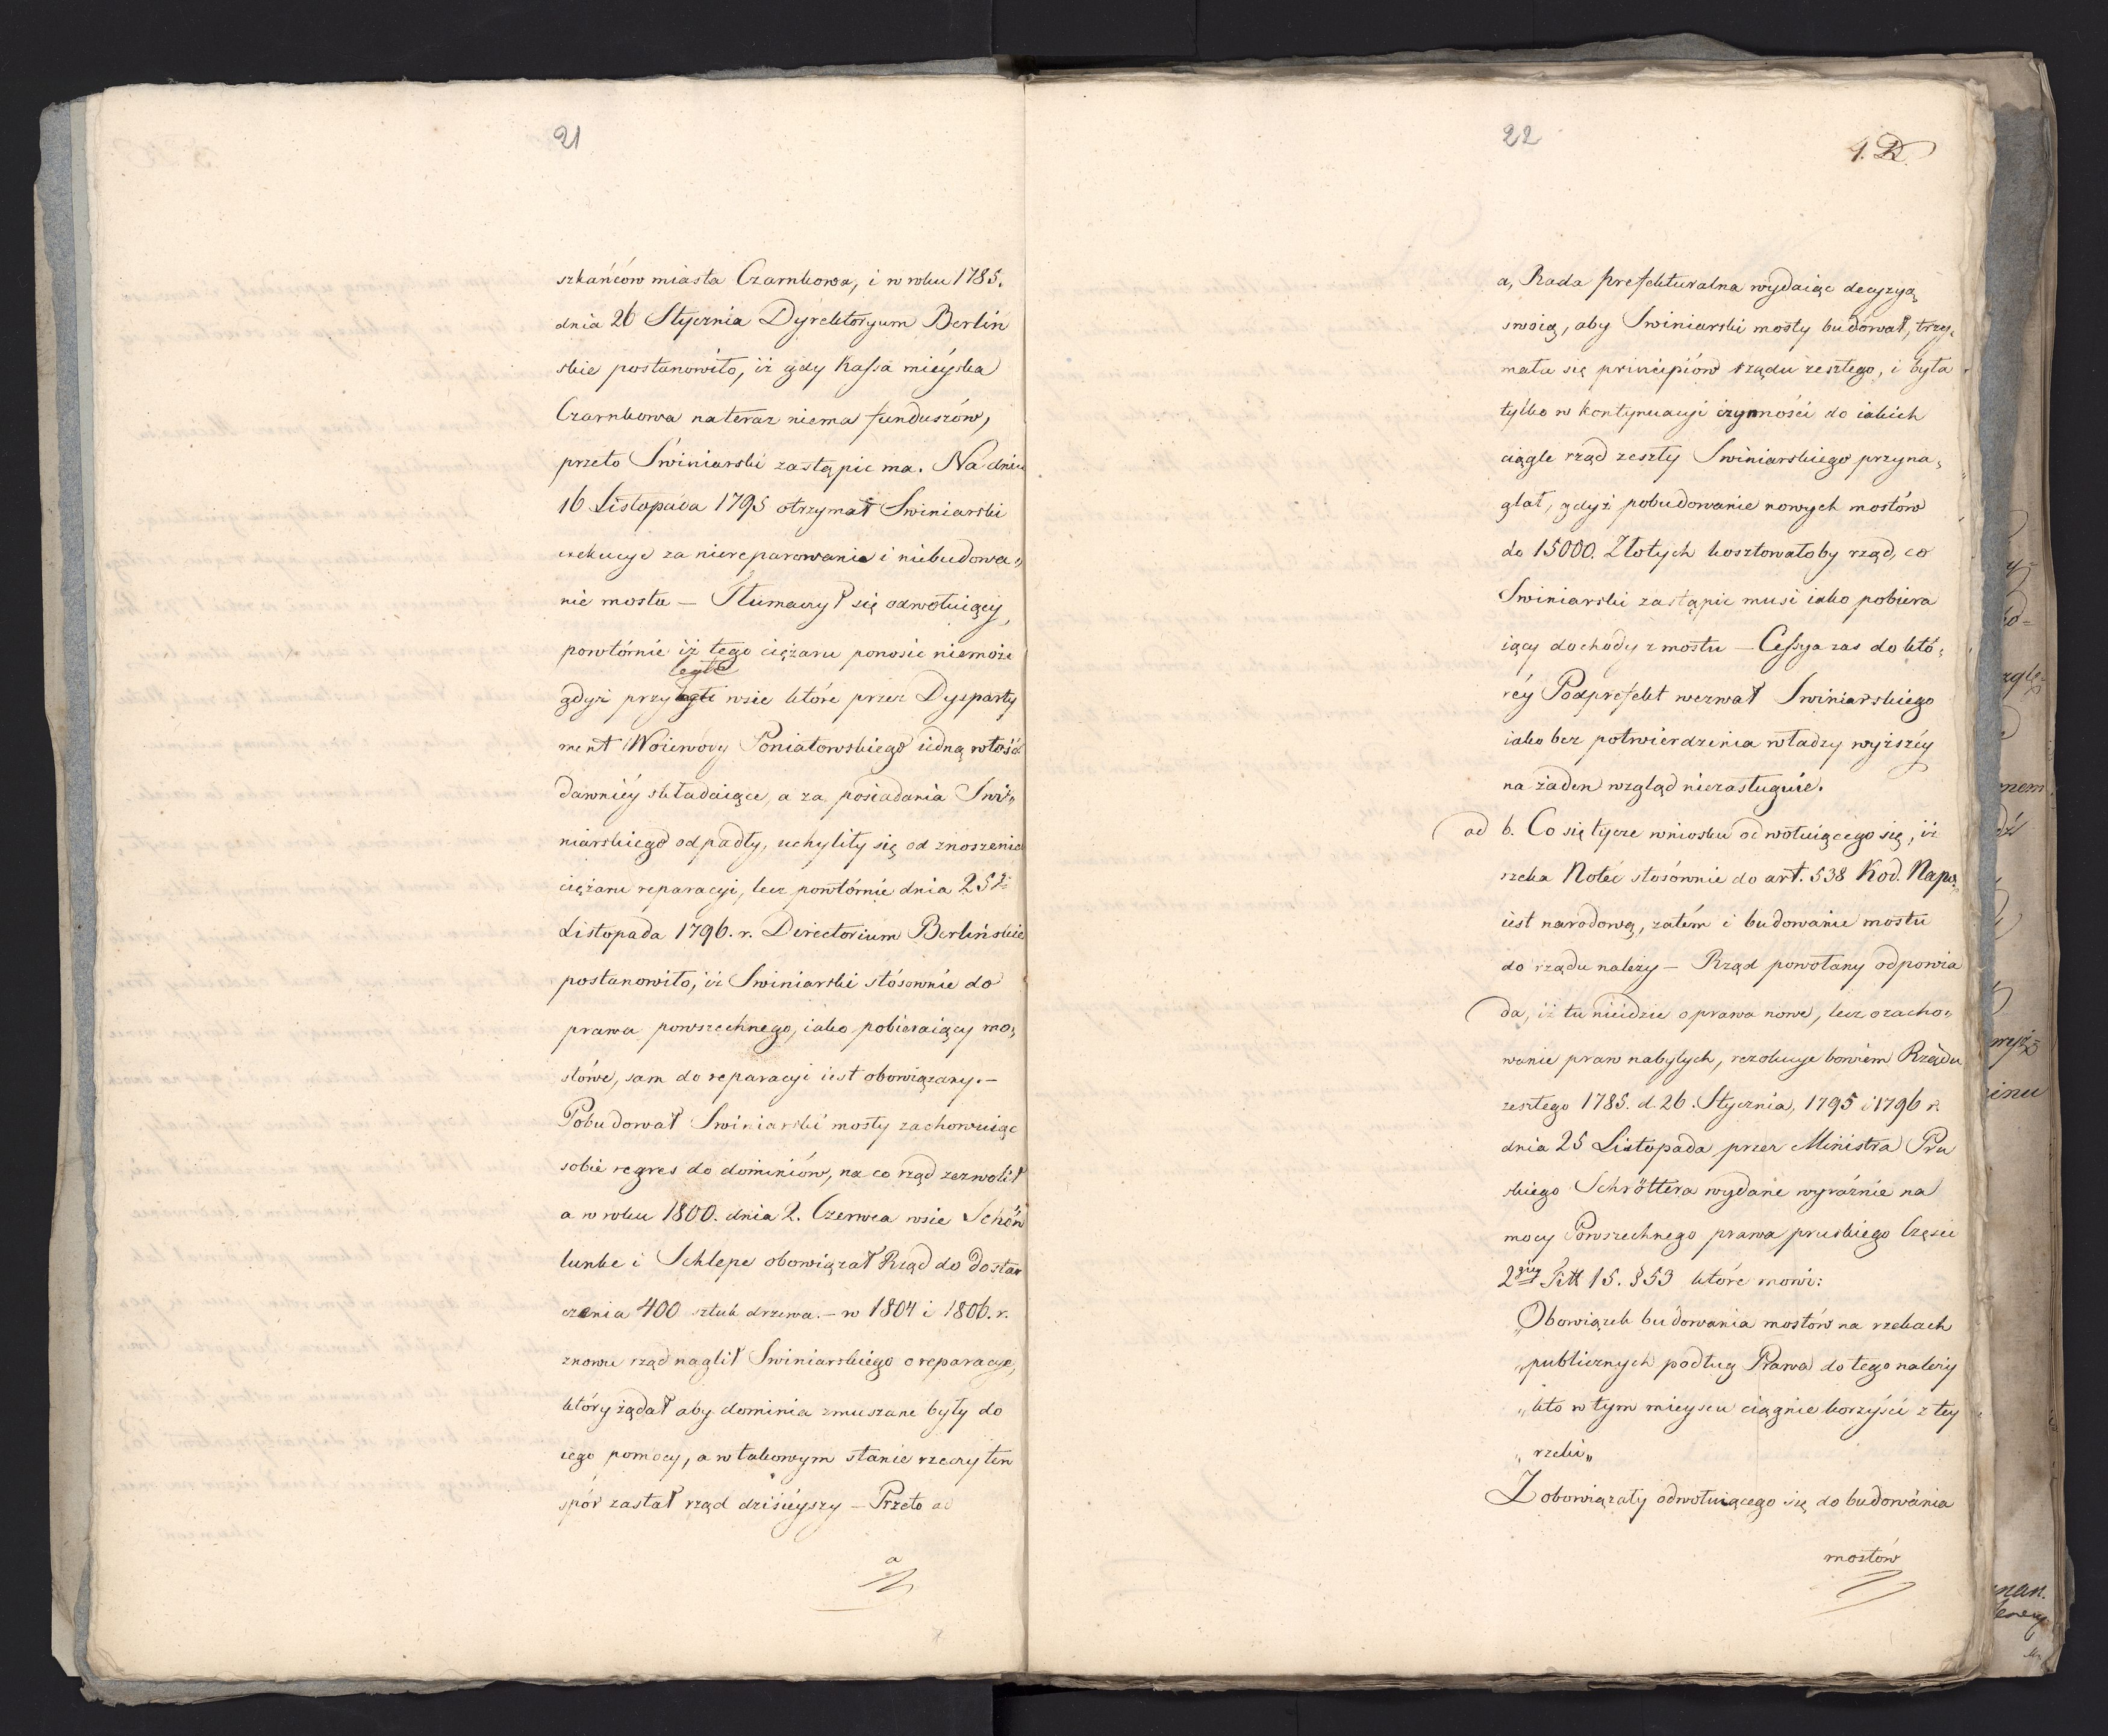 21
szkańców miasta Czarnkowa, i w roku 1785.
dnia 26 Stycznia Dyrektoryum Berlin
skie postanowiło, iż gdy Kassa mieyska
Czarnkowa na teraz niema funduszów,
przeto Swiniarski zastąpic ma. Na dniu
16 Listopada 1795 otrzymał Swiniarski
exekucye za niereparowanie i niebudowa„
nie mostu — Tłumaczył się odwołuiący,
powtórnie iż tego ciężaru ponosic niemoże
ległe
gdyż przy wsie które przez Dysparty
ment Woiewody Poniatowskiego iedną włość
dawniey składaiące, a za posiadania Swi„
niarskiego odpadły, uchyliły się od znoszenia
ciężaru reparacyi, lecz powtórnie dnia 25
Listopada 1796. r. Directorium Berlińskie
postanowiło, iż Swiniarski stósownie do
prawa powszechnego, iako pobieraiący mo„
stówe, sam do reparacyi iest obowiązany. —
Pobudował Swiniarski mosty zachowuiąc
sobie regres do dominiów, na co rząd zezwolił
a w roku 1800. dnia 2. Czerwca wsie Schön
lunke i Schlepe obowiązał Rząd do dostar
czenia 400 sztuk drzewa. — w 1804 i 1806. r.
znowu rząd naglił Swiniarskiego o reparacye,
który żądał aby dominia zmuszane były do
iego pomocy, a w takowym stanie rzeczy ten
spór zastał rząd dzisieyszy — Przeto ad
a
22
a, Rada prefekturalna wydaiąc decyzyą
swoią, aby Swiniarski mosty budował, trzy„
mała się principiów rządu zeszłego, i była
tylko w kontynuacyi czynności do iakich
ciągle rząd zeszły Swiniarskiego przyna„
glał, gdyż pobudowanie nowych mostów
do 15000. Złotych kosztowałoby rząd, co
Swiniarski zastąpic musi iako pobiera
iący dochody z mostu — Cessya zas do któ„
réy Podprefekt wezwał Swiniarskiego
iako bez potwierdzenia władzy wyższéy
na żaden wzgląd niezasługuie.
ad b. Co się tycze wniosku odwołuiącego się, iż
rzeka Noteć stosównie do art. 538 Kod. Napo„
iest narodową, zatém i budowanie mostu
do rządu należy — Rząd powołany odpowia
da, iż tu nieidzie o prawa nowe, lecz o zacho„
wanie praw nabytych, rezolucye bowiem Rządu
zeszłego 1785. d. 26. Stycznia, 1795 i 1796 r.
dnia 25 Listopada przez Ministra Pru
skiego Schröttera wydane wyraźnie na
mocy Powszechnego prawa pruskiego Części
2giey Titt 15. § 53 które mowi:
„Obowiązek budowania mostów na rzekach
„publicznych podług Prawa do tego należy
„kto w tym mieyscu ciągnie korzyści z tey
„rzeki„
Zobowiązały odwołuiącego się do budowania
mostów